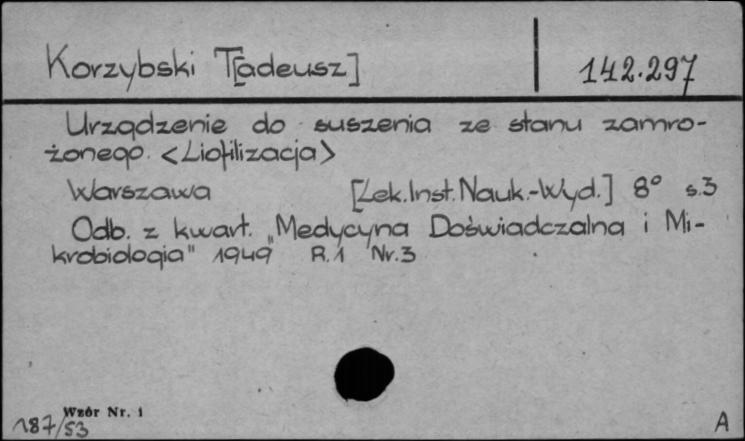 Korzybski T[adeusz]
142.297
Urządzenie do suszenia ze stanu zamro-
żonego. <Liofilizacja>
Warszawa [Lek.Inst.Nauk.-Wyd.] 8° s.3
Odb. z kwart. „Medycyna Doświadczalna i Mi-
krobiologia" 1949 R.1 Nr.3
Wzór Nr. 1
187/53
A